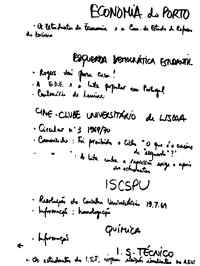 ECONOMIA do PORTO
- Os Estudantes de Economia e a Casa de
ESQUERDA DEMOCRÁTICA ESTUDANTIL
- Roger vai para casa!
- A E.D.E. e a luta popular em Portugal
- Centenário de Lenine
CINE-CLUBE UNIVERSITÁRIO de LISBOA
- Circular nº 3 1969/70
- Comunicado: Foi proibido o ciclo "O que é o cinema
de segunda"!
" : A luta contra a repressão exige o apoio
dos estudantes
ISCSPU
- Resolução do Conselho Universitário 19.7.69
- Informação: homologação
QUÍMICA
- Informação
I.S. TÉCNICO
- Os estudantes do I.S.T.